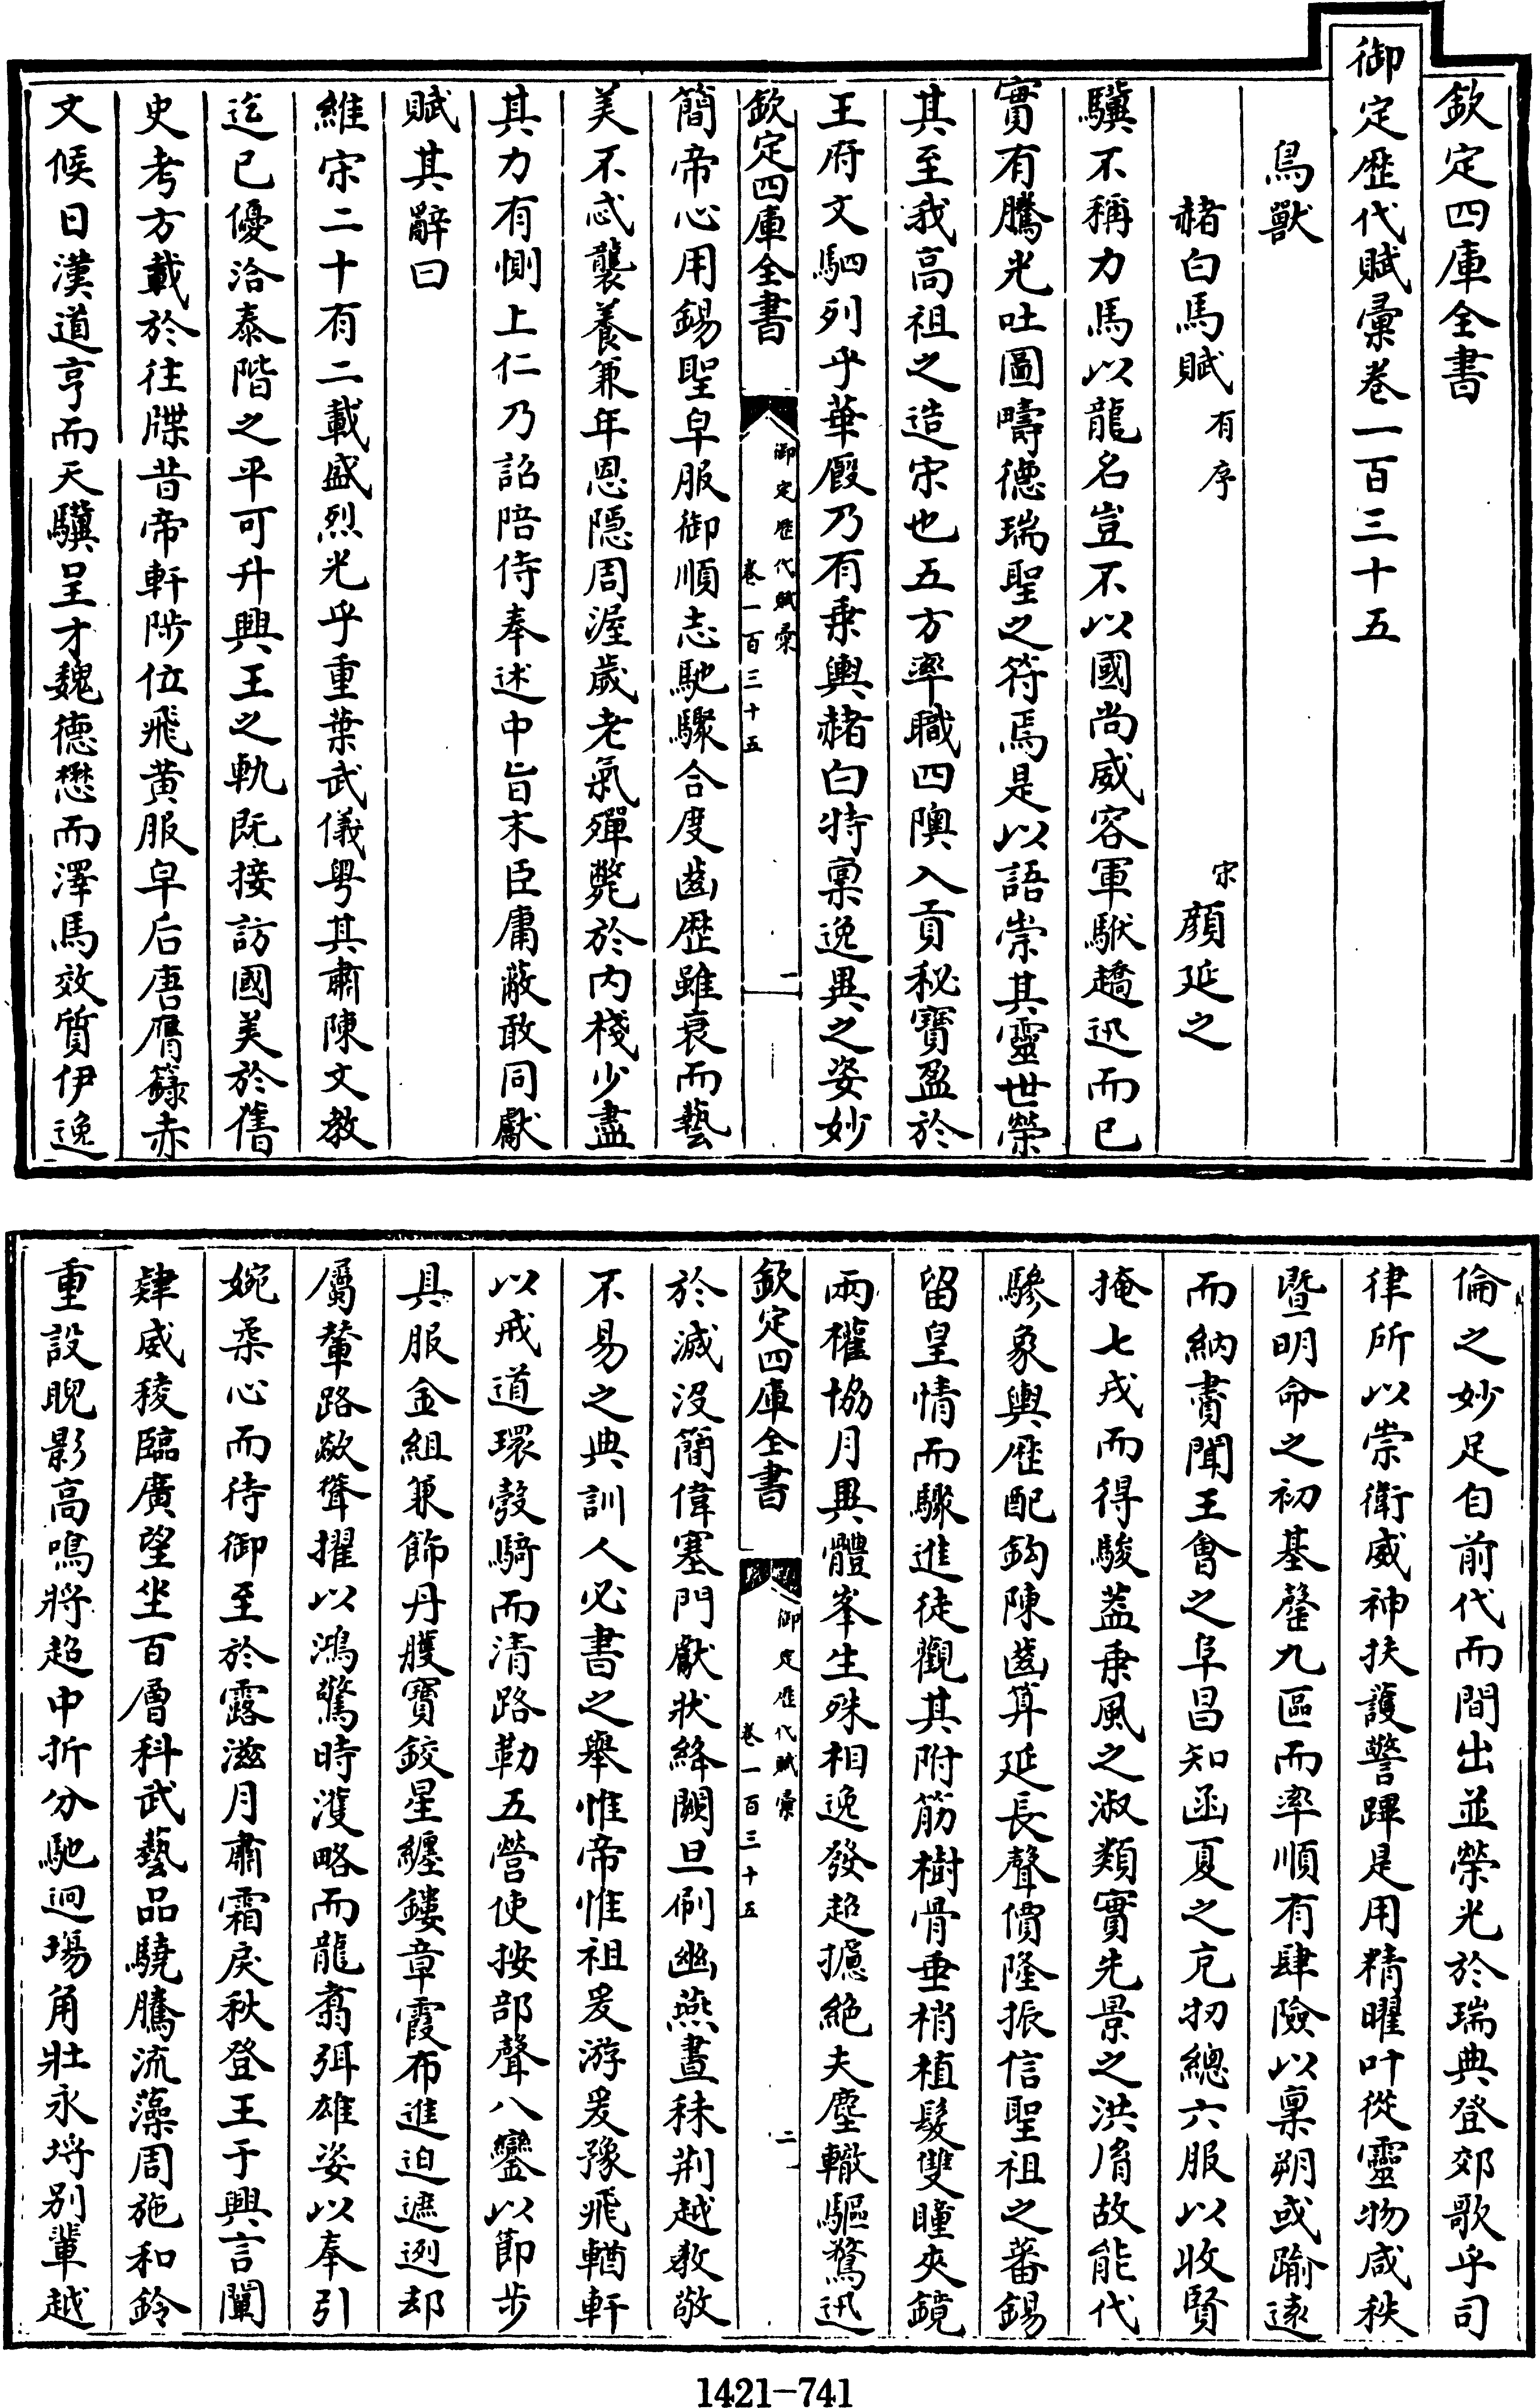 欽定四庫全書
御定歴代賦彙卷一百三十五
鳥獸
赭白馬賦有序
宋顔延之
驥不稱力馬以龍名豈不以國尚威容軍駙趫迅而已
實有騰光吐圖疇德瑞聖之符焉是以語崇其靈世榮
其至我高祖之造宋也五方率職四隩入貢秘寶盈於
王府文駟列乎華廐乃有乗輿赭白特禀逸異之姿妙
欽定四庫全書
御定歴代賦彙
卷一百三十五
一
簡帝心用錫聖皁服御順志馳驟合度齒歴雖衰而藝
美不忒襲養兼年恩隱周渥歲老氣殫斃於内棧少盡
其力有惻上仁乃詔陪侍奉述中旨末臣庸蔽敢同獻
賦其辭曰
維宋二十有二載盛烈光乎重葉武儀粤其肅陳文教
迄已優洽泰階之平可升興王之軌既接訪國美於舊
史考方載於往牒昔帝軒陟位飛黄服皁后唐膺籙赤
文候日漢道亨而天驥呈才魏德懋而澤馬效質伊逸
倫之妙足自前代而間出並榮光於瑞典登郊歌乎司
律所以崇衛威神扶護警蹕是用精曜叶從靈物咸秩
暨明命之初基罄九區而率順有肆險以禀朔或踰逺
而納賮聞王會之阜昌知函夏之充牣總六服以收賢
掩七戎而得駿葢乗風之淑類實先景之洪㣧故能代
驂象輿歴配鈎陳齒算延長聲價隆振信聖祖之蕃錫
留皇情而驟進徒觀其附筋樹骨垂梢植髮雙瞳夾鏡
兩權協月異體峯生殊相逸發超攄絶夫塵轍驅騖迅
欽定四庫全書
御定歴代賦彙
卷一百三十五
二
於滅没簡偉塞門獻狀絳闕旦刷幽燕晝秣荆越敎敬
不易之典訓人必書之舉惟帝惟祖爰游爰豫飛輶軒
以戒道環彀騎而清路勒五營使按部聲八鸞以節步
具服金組兼飾丹雘寶鉸星纏鏤章霞布進迫遮迾却
屬輦路欻聳擢以鴻驚時濩略而龍翥弭雄姿以奉引
婉柔心而待御至於露滋月肅霜戾秋登王于興言闡
肄威稜臨廣望坐百層料武藝品驍騰流藻周施和鈴
重設睨影高鳴將超中折分馳迥場角壯永埒别輩越
1421-741